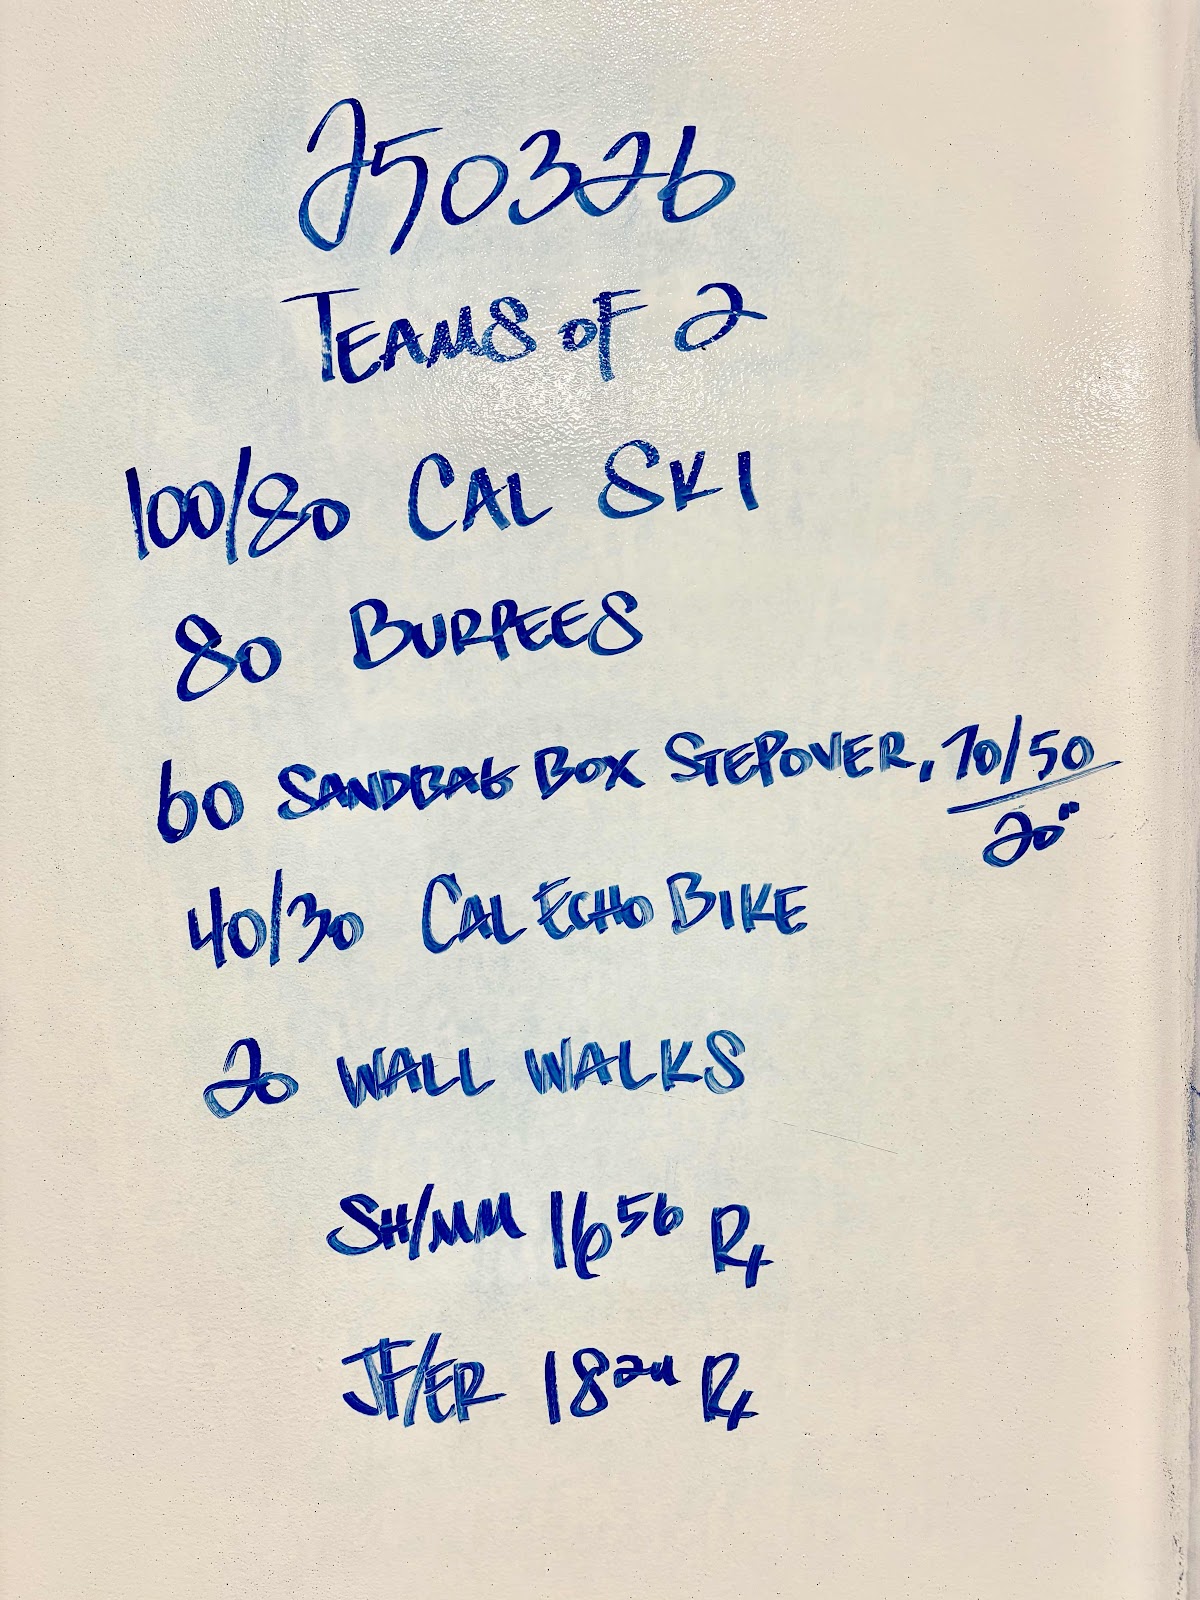 250326
TEAMS OF 2
100/80 CAL SKI
80 BURPEES
60 SANDBAG BOX STEPOVER, 70/50
20"
40/30 CAL ECHO BIKE
20 WALL WALKS
SH/MM 16 56 Rx
JF/ER 18 24 Rx